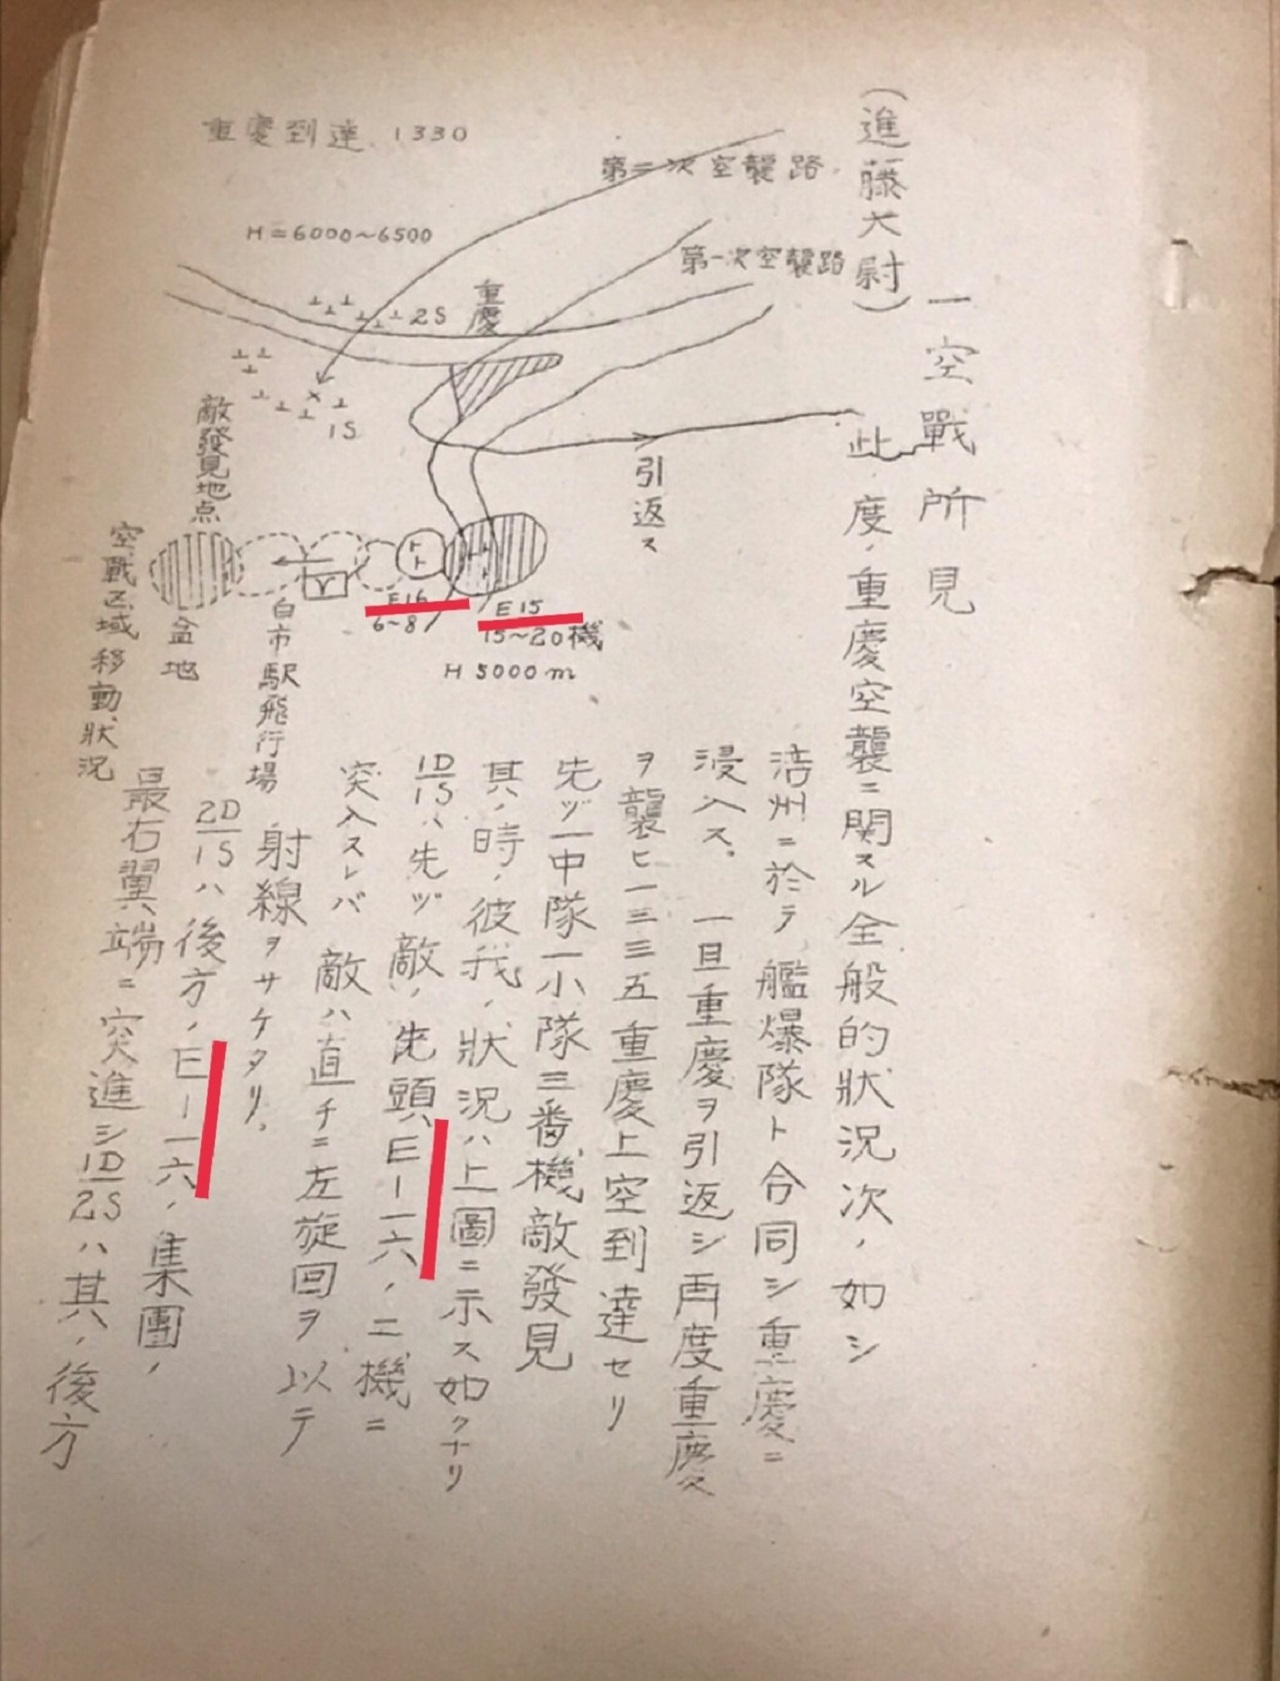 一空戰所見
(進藤大尉)
此ノ度ノ重慶空襲ニ関スル全般的狀況次ノ如シ
涪州ニ於テ艦爆隊ト合同シ重慶ニ
浸入ス。一旦重慶ヲ引返シ再度重慶
ヲ襲ヒ一三三五重慶上空到達セリ
先ヅ一中隊一小隊三番機敵發見
其ノ時ノ彼我ノ狀況ハ上圖ニ示ス如クナリ
1D/1Sハ先ヅ敵ノ先頭ノE-一六ノ二機ニ
突入スレバ敵ハ直チニ左旋回ヲ以テ
射線ヲサケタリ。
2D/1Sハ後方ノE-一六ノ集團ノ
最右翼ノ端ニ突進シ1D/2Sハ其ノ後方
重慶到達 1330
第二次空襲路
H=6000~6500
第一次空襲路
重慶
2S
1S
敵發見地点
引返ス
E16
6~8
E15
15~20機
H 5000m
白市駅飛行場
盆地
空戰区域移動狀況